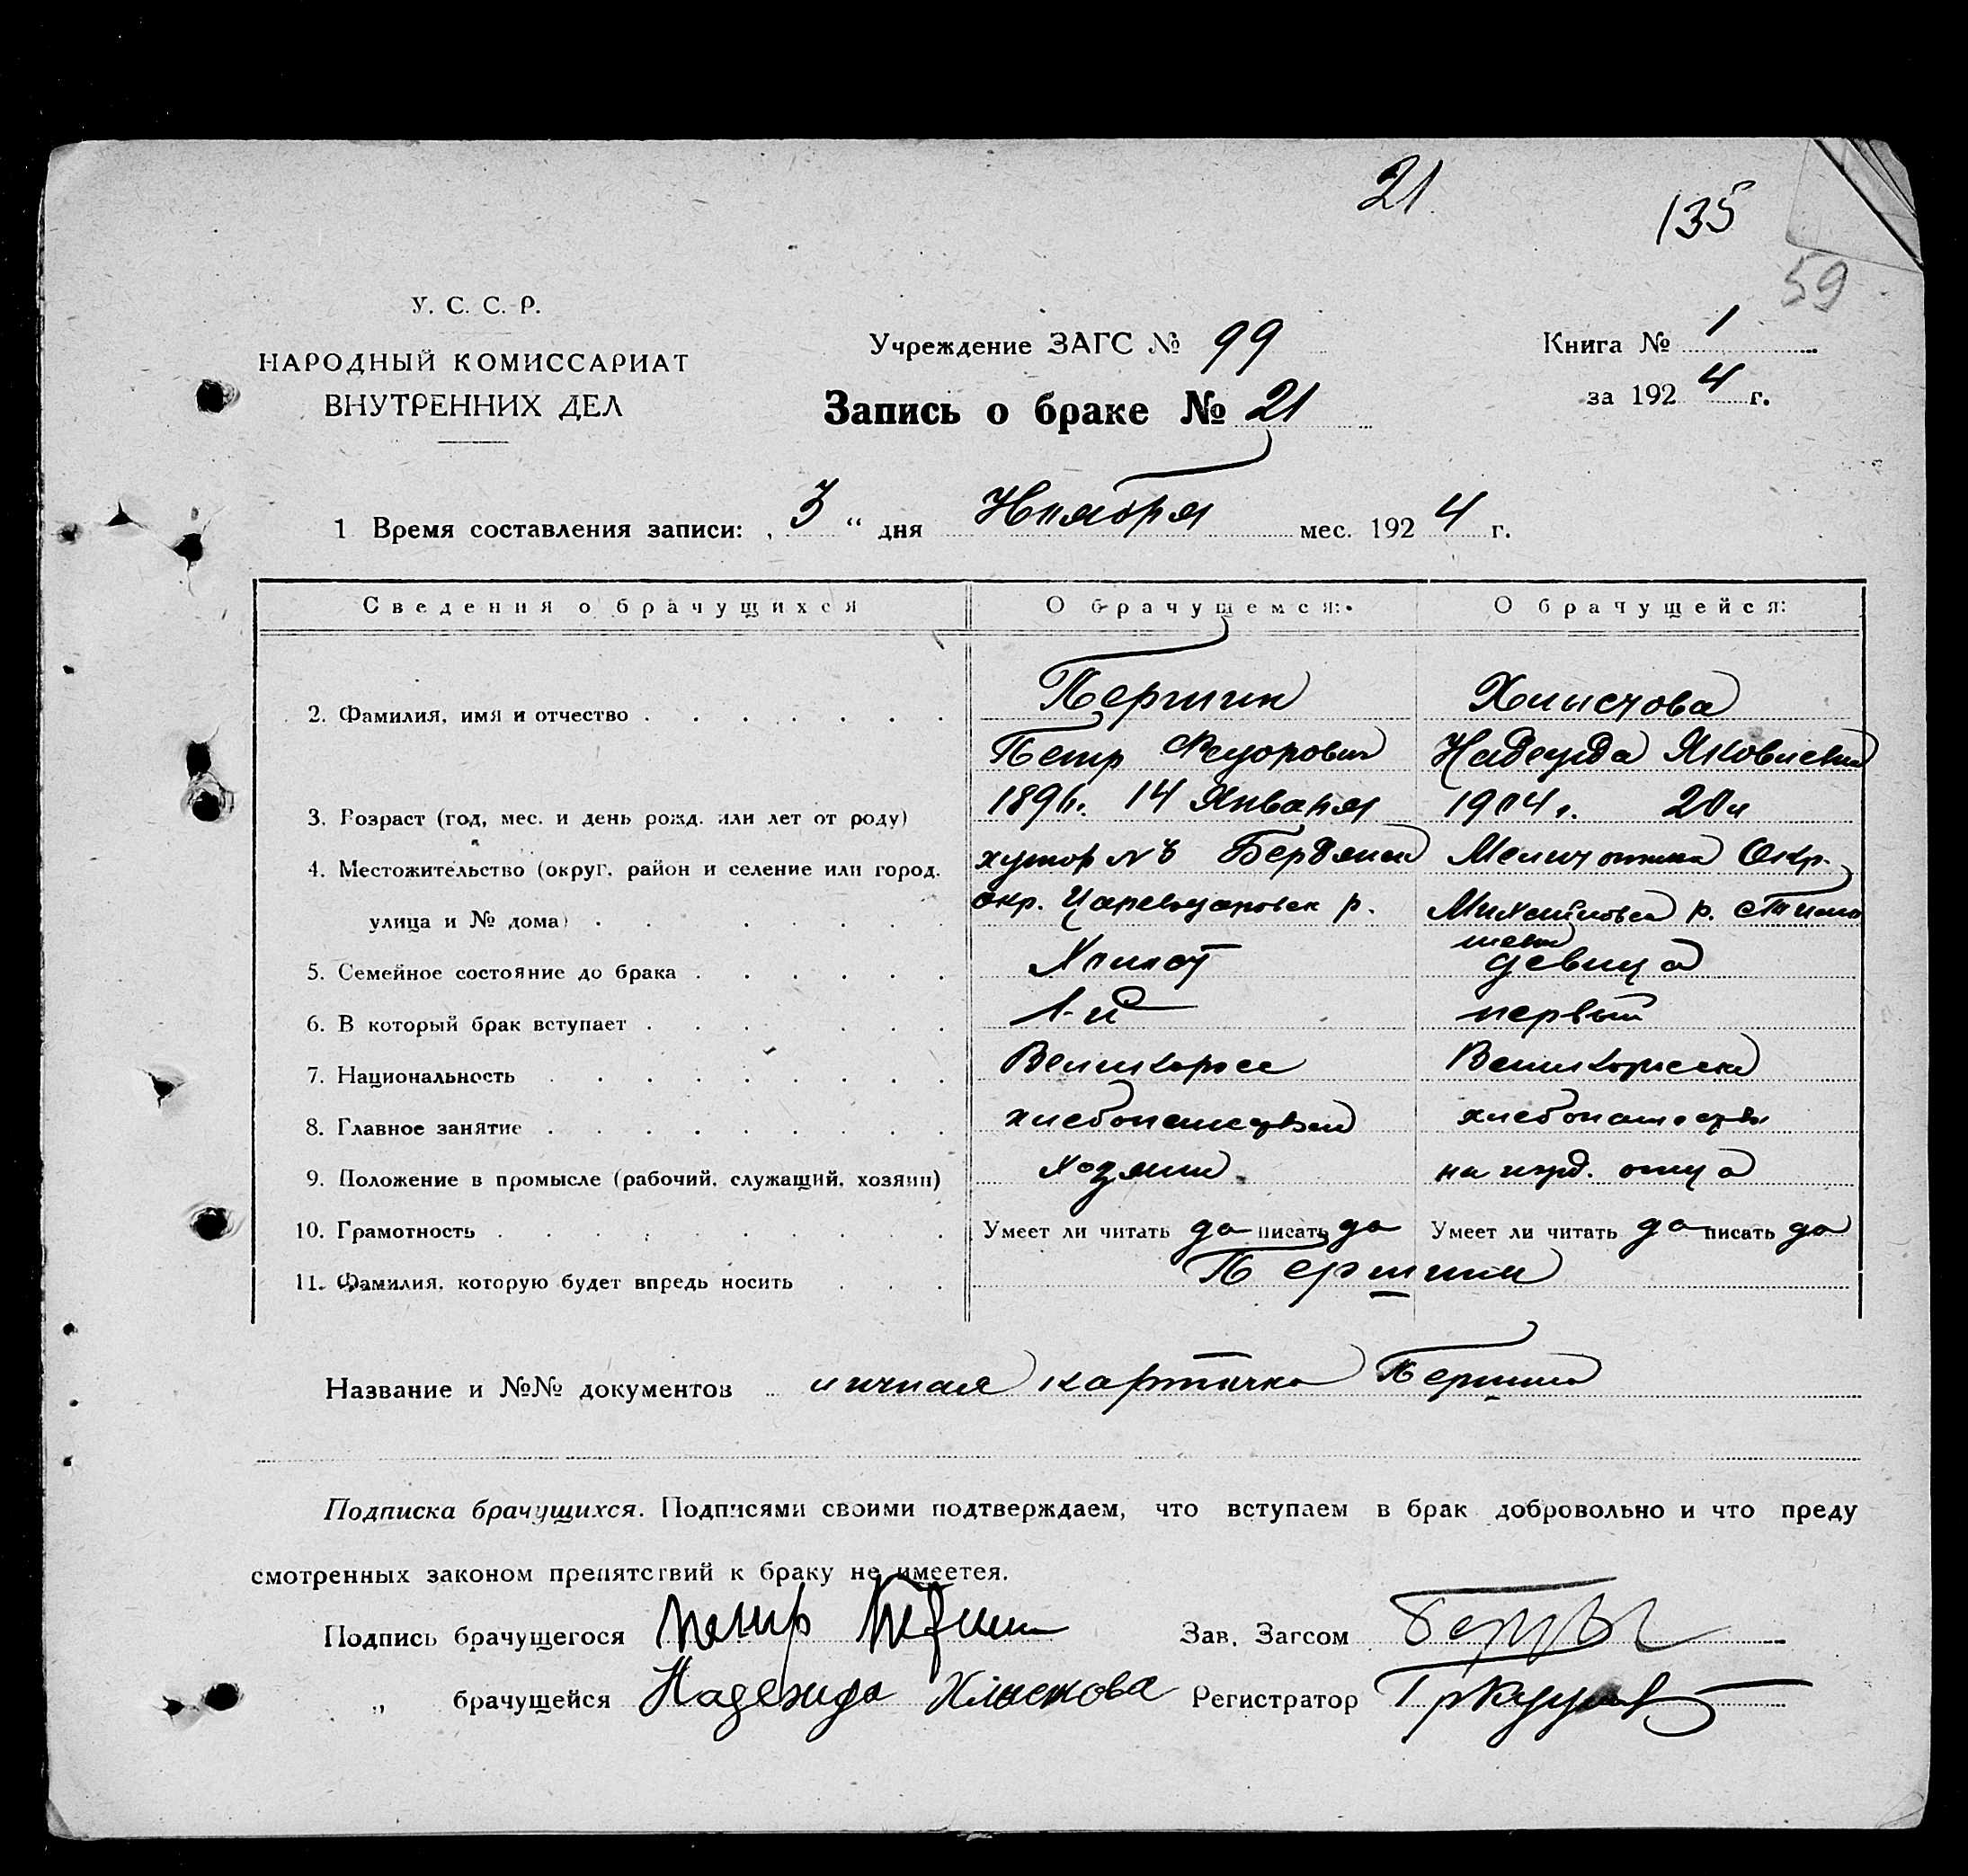 21
135
59
У. С. С. Р.
НАРОДНЫЙ КОМИССАРИАТ
ВНУТРЕННИХ ДЕЛ
Учреждение ЗАГС № 99
Запись о браке № 21
Книга № 1
за 1924 г.
1 Время составления записи: „ 3 “ дня Ноября мес. 1924 г.
Сведения о брачущихся О брачущемся: О брачущейся:
2. Фамилия, имя и отчество Першин Хлыстова
Петр Федорович Надежда Яковлевна
3. Возраст (год, мес. и день рожд. или лет от роду) 1896г. 14 Января 1904 г. 20 л
4. Местожительство (округ, район и селение или город, хутор Бердянск Мелитопольск Окр.
улица и № дома) окр. Цареводаровск р. Михайловск р.
5. Семейное состояние до брака Холост девица
6. В который брак вступает 1-й первый
7. Национальность Великоросс Великоросска
8. Главное занятие хлебопашество хлебопашество
9. Положение в промысле (рабочий, служащий, хозяин) хозяин на ижд. отца
10. Грамотность Умеет ли читать да писать да Умеет ли читать да писать да
11. Фамилия, которую будет впредь носить Першины
Название и №№ документов личная карточка Першина
Подписка брачущихся. Подписями своими подтверждаем, что вступаем в брак добровольно и что преду
смотренных законом препятствий к браку не имеется.
Подпись брачущегося Петр Першин Зав. Загсом
„ брачущейся Надежда Хлыстова Регистратор